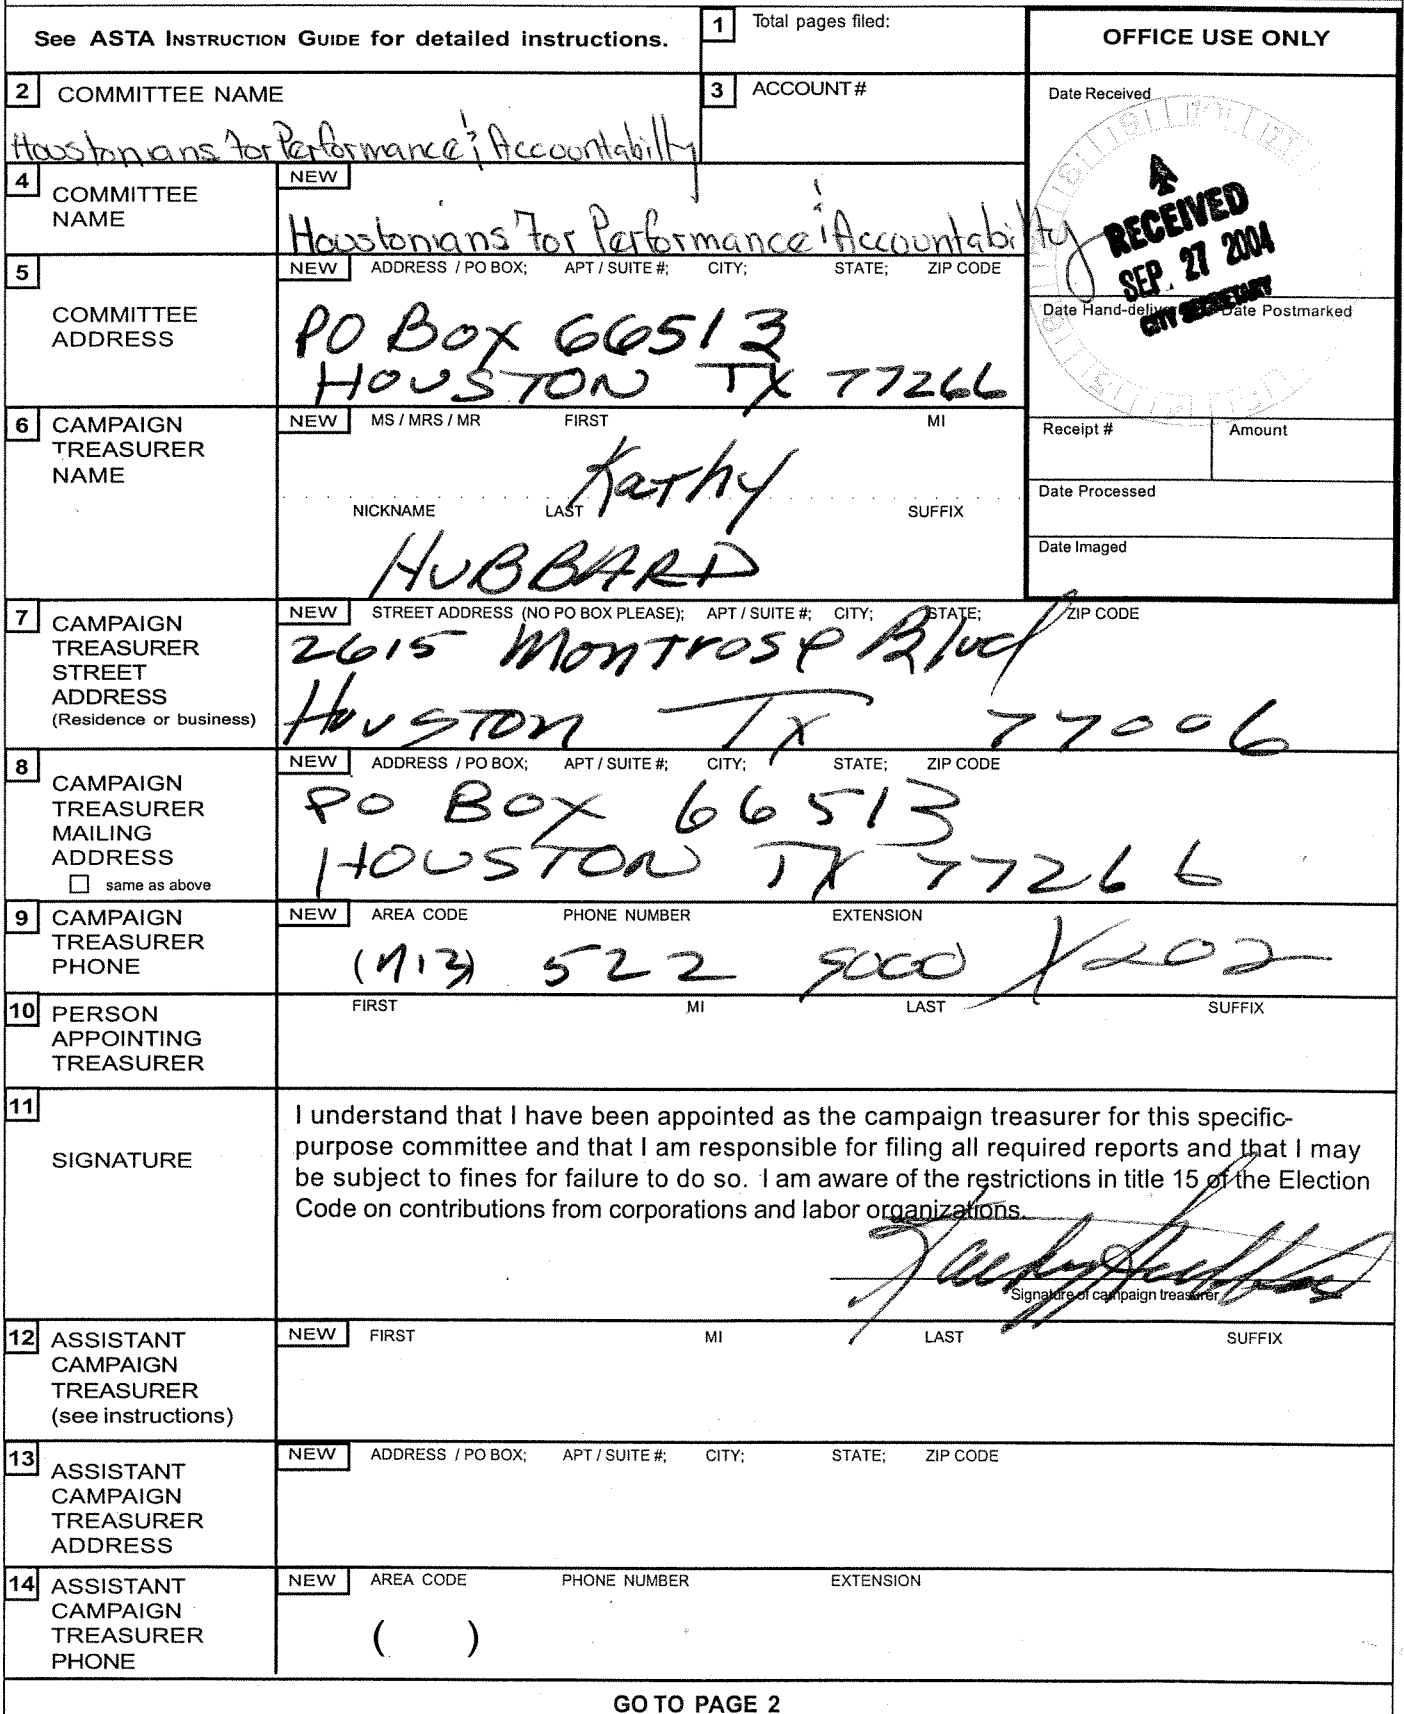 See ASTA INSTRUCTION GUIDE for detailed instructions.
1 Total pages filed:
OFFICE USE ONLY
2 COMMITTEE NAME
Houstonians for Performance & Accountabilty
3 ACCOUNT #
Date Received
RECEIVED
SEP. 27 2004
CITY SECRETARY
Date Hand-deliv Date Postmarked
Receipt # Amount
Date Processed
Date Imaged
4 COMMITTEE
NAME
NEW
Houstonians for Performance & Accountability
5
COMMITTEE
ADDRESS
NEW ADDRESS / PO BOX; APT / SUITE #; CITY; STATE; ZIP CODE
PO Box 66513
HOUSTON TX 77266
6 CAMPAIGN
TREASURER
NAME
NEW MS / MRS / MR FIRST MI
Kathy
NICKNAME LAST SUFFIX
HUBBARD
7 CAMPAIGN
TREASURER
STREET
ADDRESS
(Residence or business)
NEW STREET ADDRESS (NO PO BOX PLEASE); APT / SUITE #; CITY; STATE; ZIP CODE
2615 Montrose Blvd
Houston Tx 77006
8
CAMPAIGN
TREASURER
MAILING
ADDRESS
same as above
NEW ADDRESS / PO BOX; APT / SUITE #; CITY; STATE; ZIP CODE
PO BOX 66513
HOUSTON TX 77266
9 CAMPAIGN
TREASURER
PHONE
NEW AREA CODE PHONE NUMBER EXTENSION
(713) 522 9000 X202
10 PERSON
APPOINTING
TREASURER
FIRST MI LAST SUFFIX
11
SIGNATURE
I understand that I have been appointed as the campaign treasurer for this specific-
purpose committee and that I am responsible for filing all required reports and that I may
be subject to fines for failure to do so. I am aware of the restrictions in title 15 of the Election
Code on contributions from corporations and labor organizations.
Kathy Hubbard
Signature of campaign treasurer
12 ASSISTANT
CAMPAIGN
TREASURER
(see instructions)
NEW FIRST MI LAST SUFFIX
13
ASSISTANT
CAMPAIGN
TREASURER
ADDRESS
NEW ADDRESS / PO BOX; APT / SUITE #; CITY; STATE; ZIP CODE
14 ASSISTANT
CAMPAIGN
TREASURER
PHONE
NEW AREA CODE PHONE NUMBER EXTENSION
( )
GO TO PAGE 2